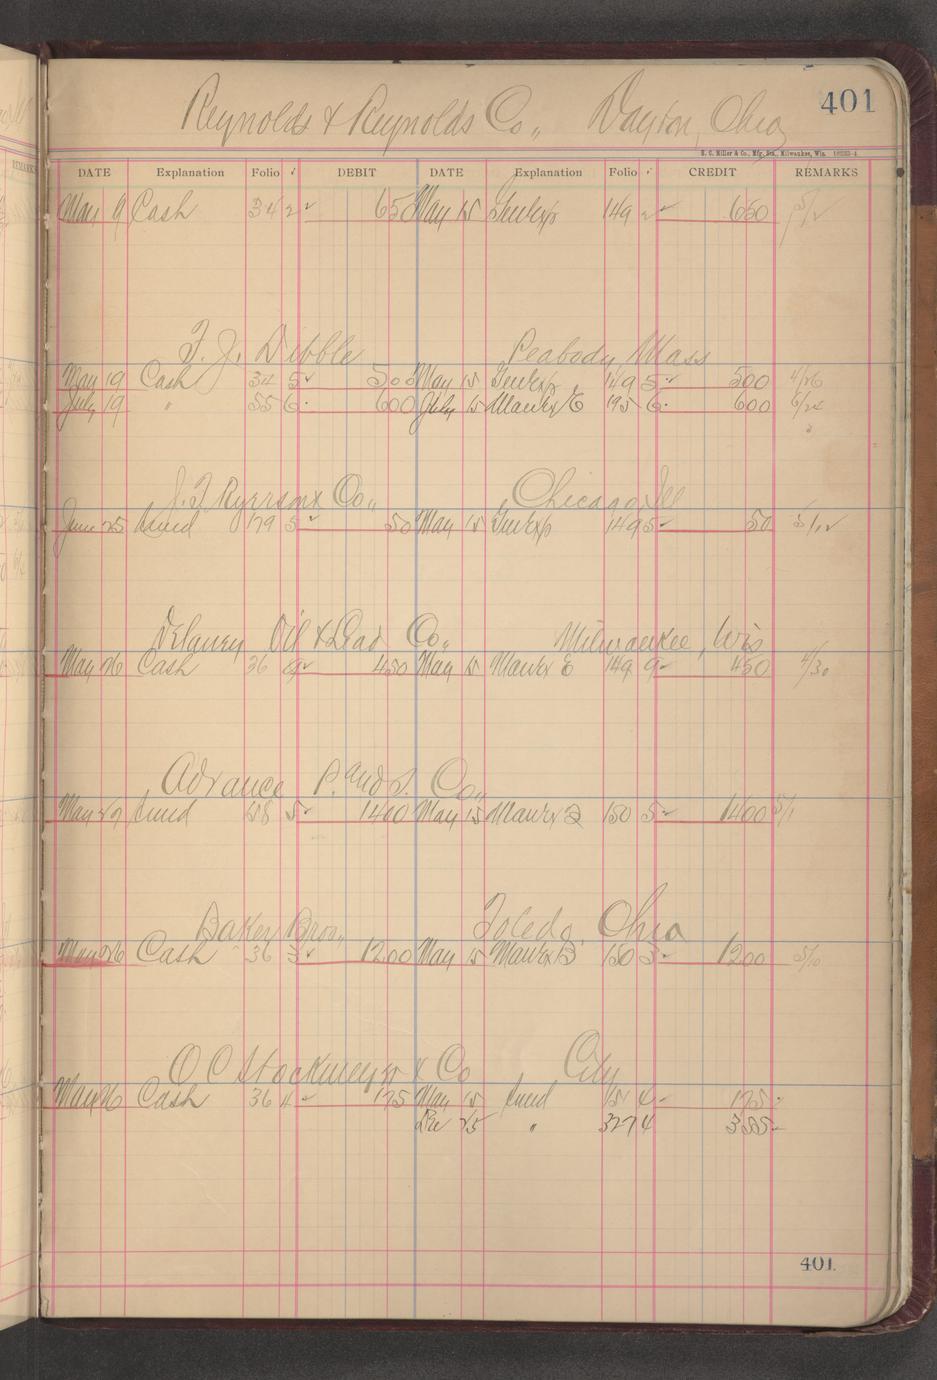 401
Reynolds & Reynolds Co,, Dayton, Ohio
H. C. Miller & Co., Mfg. Sta., Milwaukee, Wis.
DATE Explanation Folio ✓ DEBIT DATE Explanation Folio ✓ CREDIT REMARKS
May 9 Cash 34 2 ✓ 650 May 15 149 2 ✓ 650 5/2
F. J. Dibble Peabody Mass
May 19 Cash 34 5 ✓ 500 May 15 149 5 ✓ 500 4/26
July 19 " 55 6 600 July 15 ManEx E 195 6 600 6/24
J. T. Ryerson & Co,, Chicago Ill
June 25 179 5 ✓ 50 May 15 149 5 ✓ 50 3/12
Delaney Oil & Lead Co,, Milwaukee, Wis
May 26 Cash 36 9 ✓ 450 May 15 ManEx E 149 9 ✓ 450 4/30
Advance P. and S. Co,,
May 29 158 5 ✓ 1400 May 15 ManEx 150 5 ✓ 1400 5/1
Baker Bros,, Toledo, Ohio
May 26 Cash 36 3 ✓ 1200 May 15 ManEx B 150 3 ✓ 1200 5/10
O C Stockmeyer & Co City
May 26 Cash 36 4 ✓ 175 May 15 151 4 ✓ 175
Dec 25 " 327 4 385
401